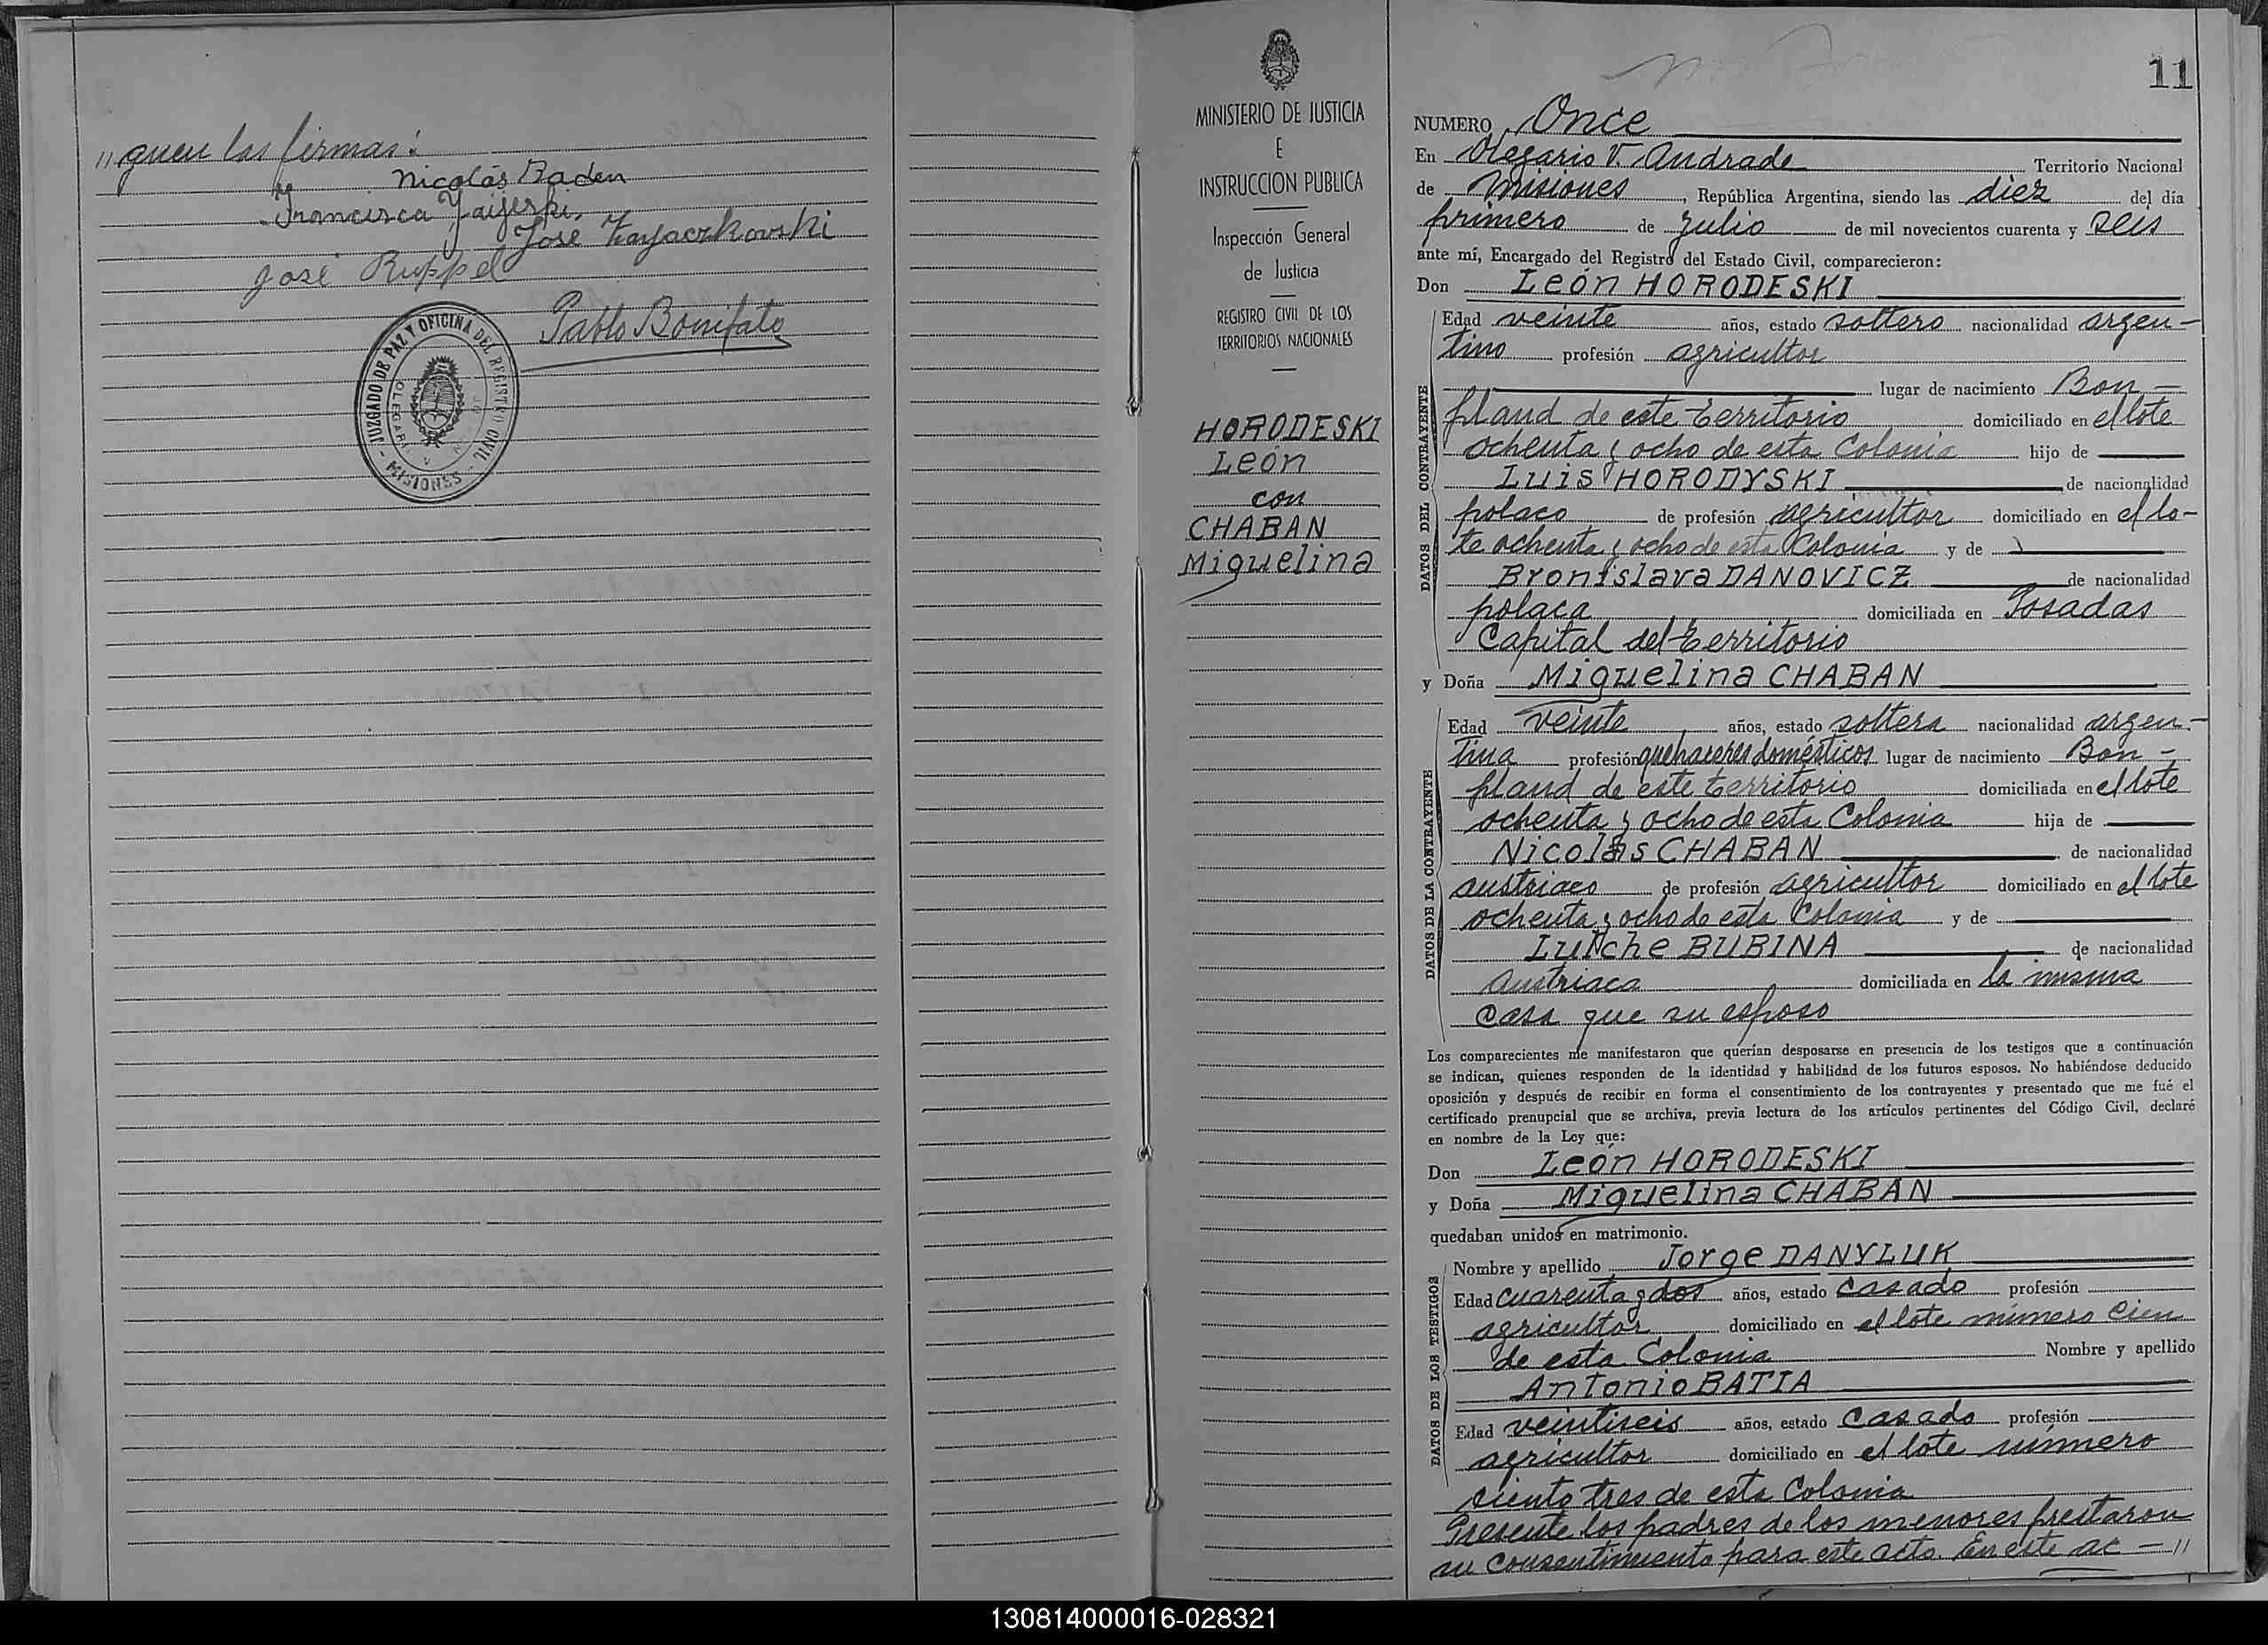 "guen las firmas:
Nicolás Baden
Francisca
José Zayaczkowski
José Ruppel
Pablo Bonifato
JUZGADO DE PAZ Y OFICINA DEL REGISTRO CIVIL
- MISIONES -
MINISTERIO DE JUSTICIA
E
INSTRUCCION PUBLICA
Inspección General
de Justicia
REGISTRO CIVIL DE LOS
TERRITORIOS NACIONALES
HORODESKI
León
con
CHABAN
Miguelina
11
NUMERO Once
En Olegario V. Andrade Territorio Nacional
de Misiones, República Argentina, siendo las diez del día
primero de Julio de mil novecientos cuarenta y seis
ante mí, Encargado del Registro del Estado Civil, comparecieron:
Don León HORODESKI
DATOS DEL CONTRAYENTE
Edad veinte años, estado soltero nacionalidad argen-
tino profesión agricultor
lugar de nacimiento Bon-
pland de este territorio domiciliado en el lote
ochenta y ocho de esta Colonia hijo de
Luis HORODYSKI de nacionalidad
polaco de profesión agricultor domiciliado en el lo-
te ochenta y ocho de esta Colonia y de
Bronislava DANOVICZ de nacionalidad
polaca domiciliada en Posadas
Capital del territorio
y Doña Miguelina CHABAN
DATOS DE LA CONTRAYENTE
Edad veinte años, estado soltera nacionalidad argen-
tina profesión quehaceres domésticos lugar de nacimiento Bon-
pland de este territorio domiciliada en el lote
ochenta y ocho de esta Colonia hija de
Nicolás CHABAN de nacionalidad
austriaco de profesión agricultor domiciliado en el lote
ochenta y ocho de esta Colonia y de
BUBINA de nacionalidad
austriaca domiciliada en la misma
casa que su esposo
Los comparecientes me manifestaron que querían desposarse en presencia de los testigos que a continuación
se indican, quienes responden de la identidad y habilidad de los futuros esposos. No habiéndose deducido
oposición y después de recibir en forma el consentimiento de los contrayentes y presentado que me fué el
certificado prenupcial que se archiva, previa lectura de los artículos pertinentes del Código Civil, declaré
en nombre de la Ley que:
Don León HORODESKI
y Doña Miguelina CHABAN
quedaban unidos en matrimonio.
DATOS DE LOS TESTIGOS
Nombre y apellido Jorge DANYLUK
Edad cuarenta y dos años, estado casado profesión
agricultor domiciliado en el lote número cien
de esta Colonia Nombre y apellido
Antonio BATIA
Edad veintiseis años, estado casado profesión
agricultor domiciliado en el lote número
ciento tres de esta Colonia
Presente los padres de los menores prestaron
su consentimiento para este acto. En este ac-"
130814000016-028321